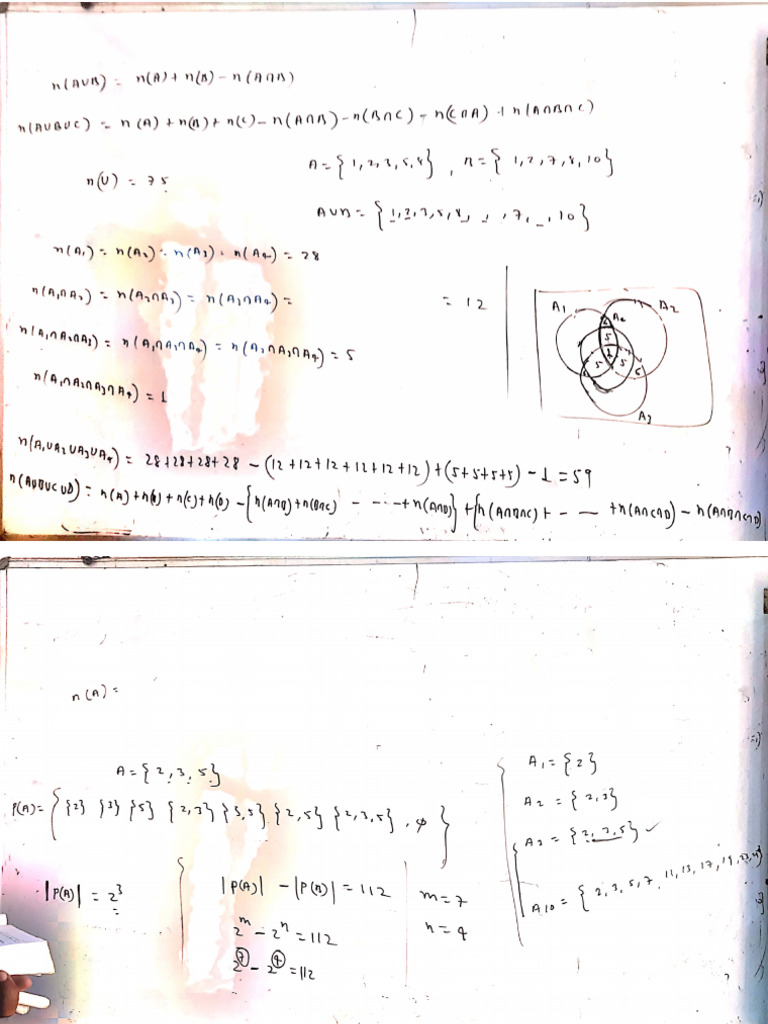 n(A∪B) = n(A) + n(B) - n(A∩B)
n(A∪B∪C) = n(A) + n(B) + n(C) - n(A∩B) - n(B∩C) - n(C∩A) + n(A∩B∩C)
A = {1, 2, 3, 5, 8}, B = {1, 2, 7, 8, 10}
n(U) = 75
A∪B = {1, 2, 3, 5, 8, _, _, 7, _, 10}
n(A₁) = n(A₂) = n(A₃) = n(A₄) = 28
n(A₁∩A₂) = n(A₂∩A₃) = n(A₃∩A₄) = = 12
n(A₁∩A₂∩A₃) = n(A₁∩A₃∩A₄) = n(A₂∩A₃∩A₄) = 5
n(A₁∩A₂∩A₃∩A₄) = 1
A₁ A₂
5
2
5 5 5
A₃
n(A₁∪A₂∪A₃∪A₄) = 28+28+28+28 - (12+12+12+12+12+12) + (5+5+5+5) - 1 = 59
n(A∪B∪C∪D) = n(A) + n(B) + n(C) + n(D) - {n(A∩B) + n(B∩C) - - - - + n(A∩D)} + {n(A∩B∩C) + - - - + n(A∩C∩D) - n(A∩B∩C∩D)
n(A) =
A = {2, 3, 5}
P(A) = { {2} {3} {5} {2, 3} {3, 5} {2, 5} {2, 3, 5}, φ }
|P(A)| = 2³
|P(A)| - |P(B)| = 112
2ᵐ - 2ⁿ = 112
2⁷ - 2⁴ = 112
m = 7
n = 4
A₁ = {2}
A₂ = {2, 3}
A₃ = {2, 3, 5} ✓
A₁₀ = {2, 3, 5, 7, 11, 13, 17, 19, 23, 29}